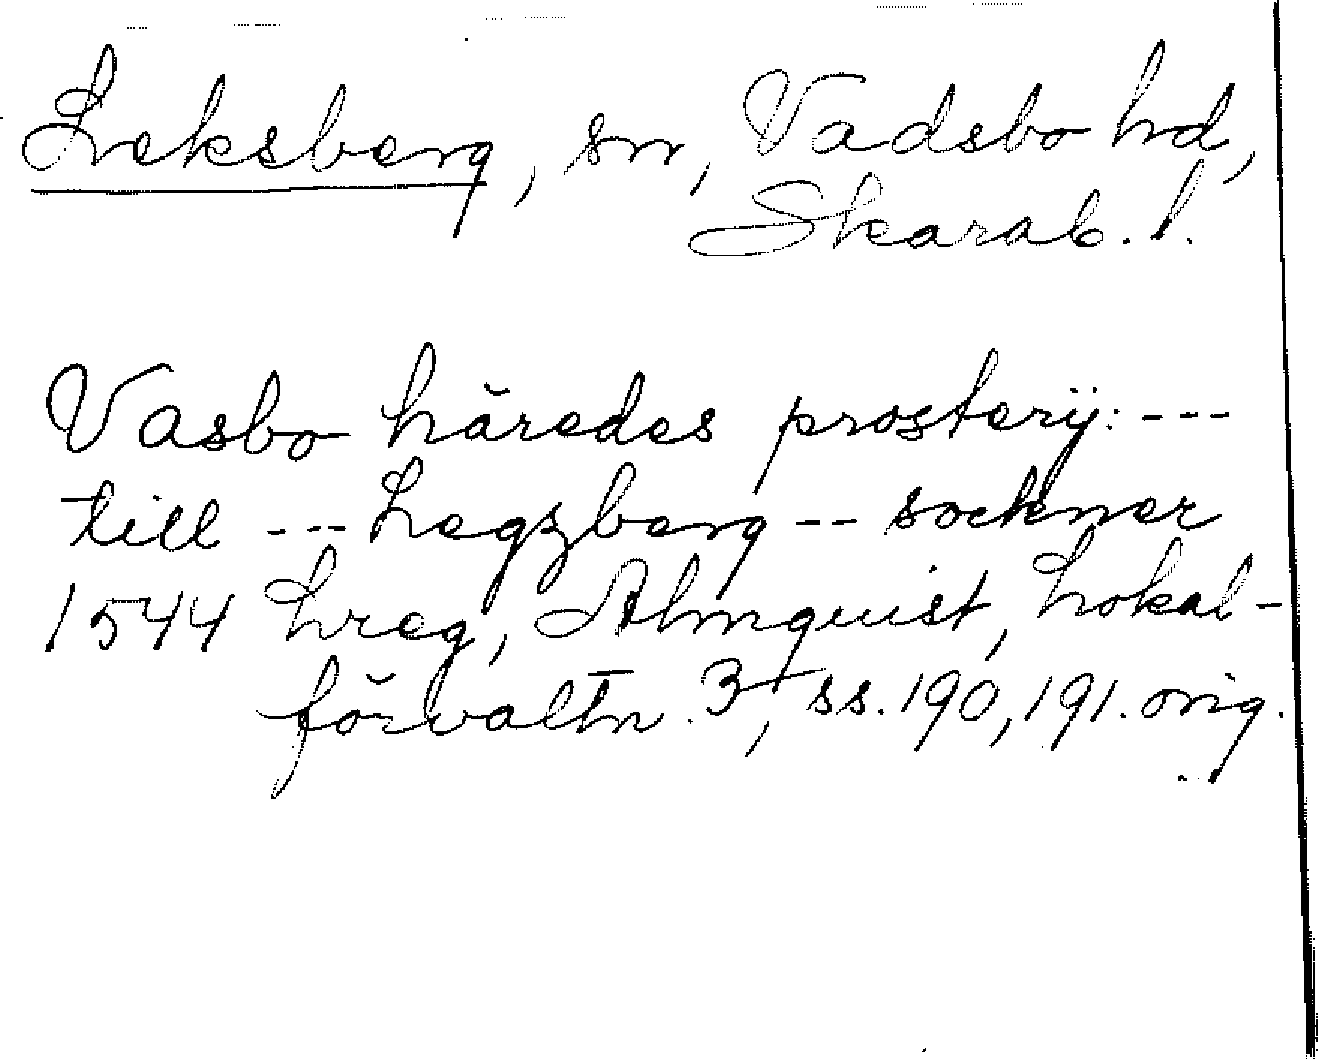 Leksberg, sn, Vadsbo hd,
Skarab. l.
Vasbo häredes prosterij: ---
till --- Legzberg -- sockner
1544 Lreg, Almquist, Lokal-
förvaltn. 3, ss. 190, 191. orig.